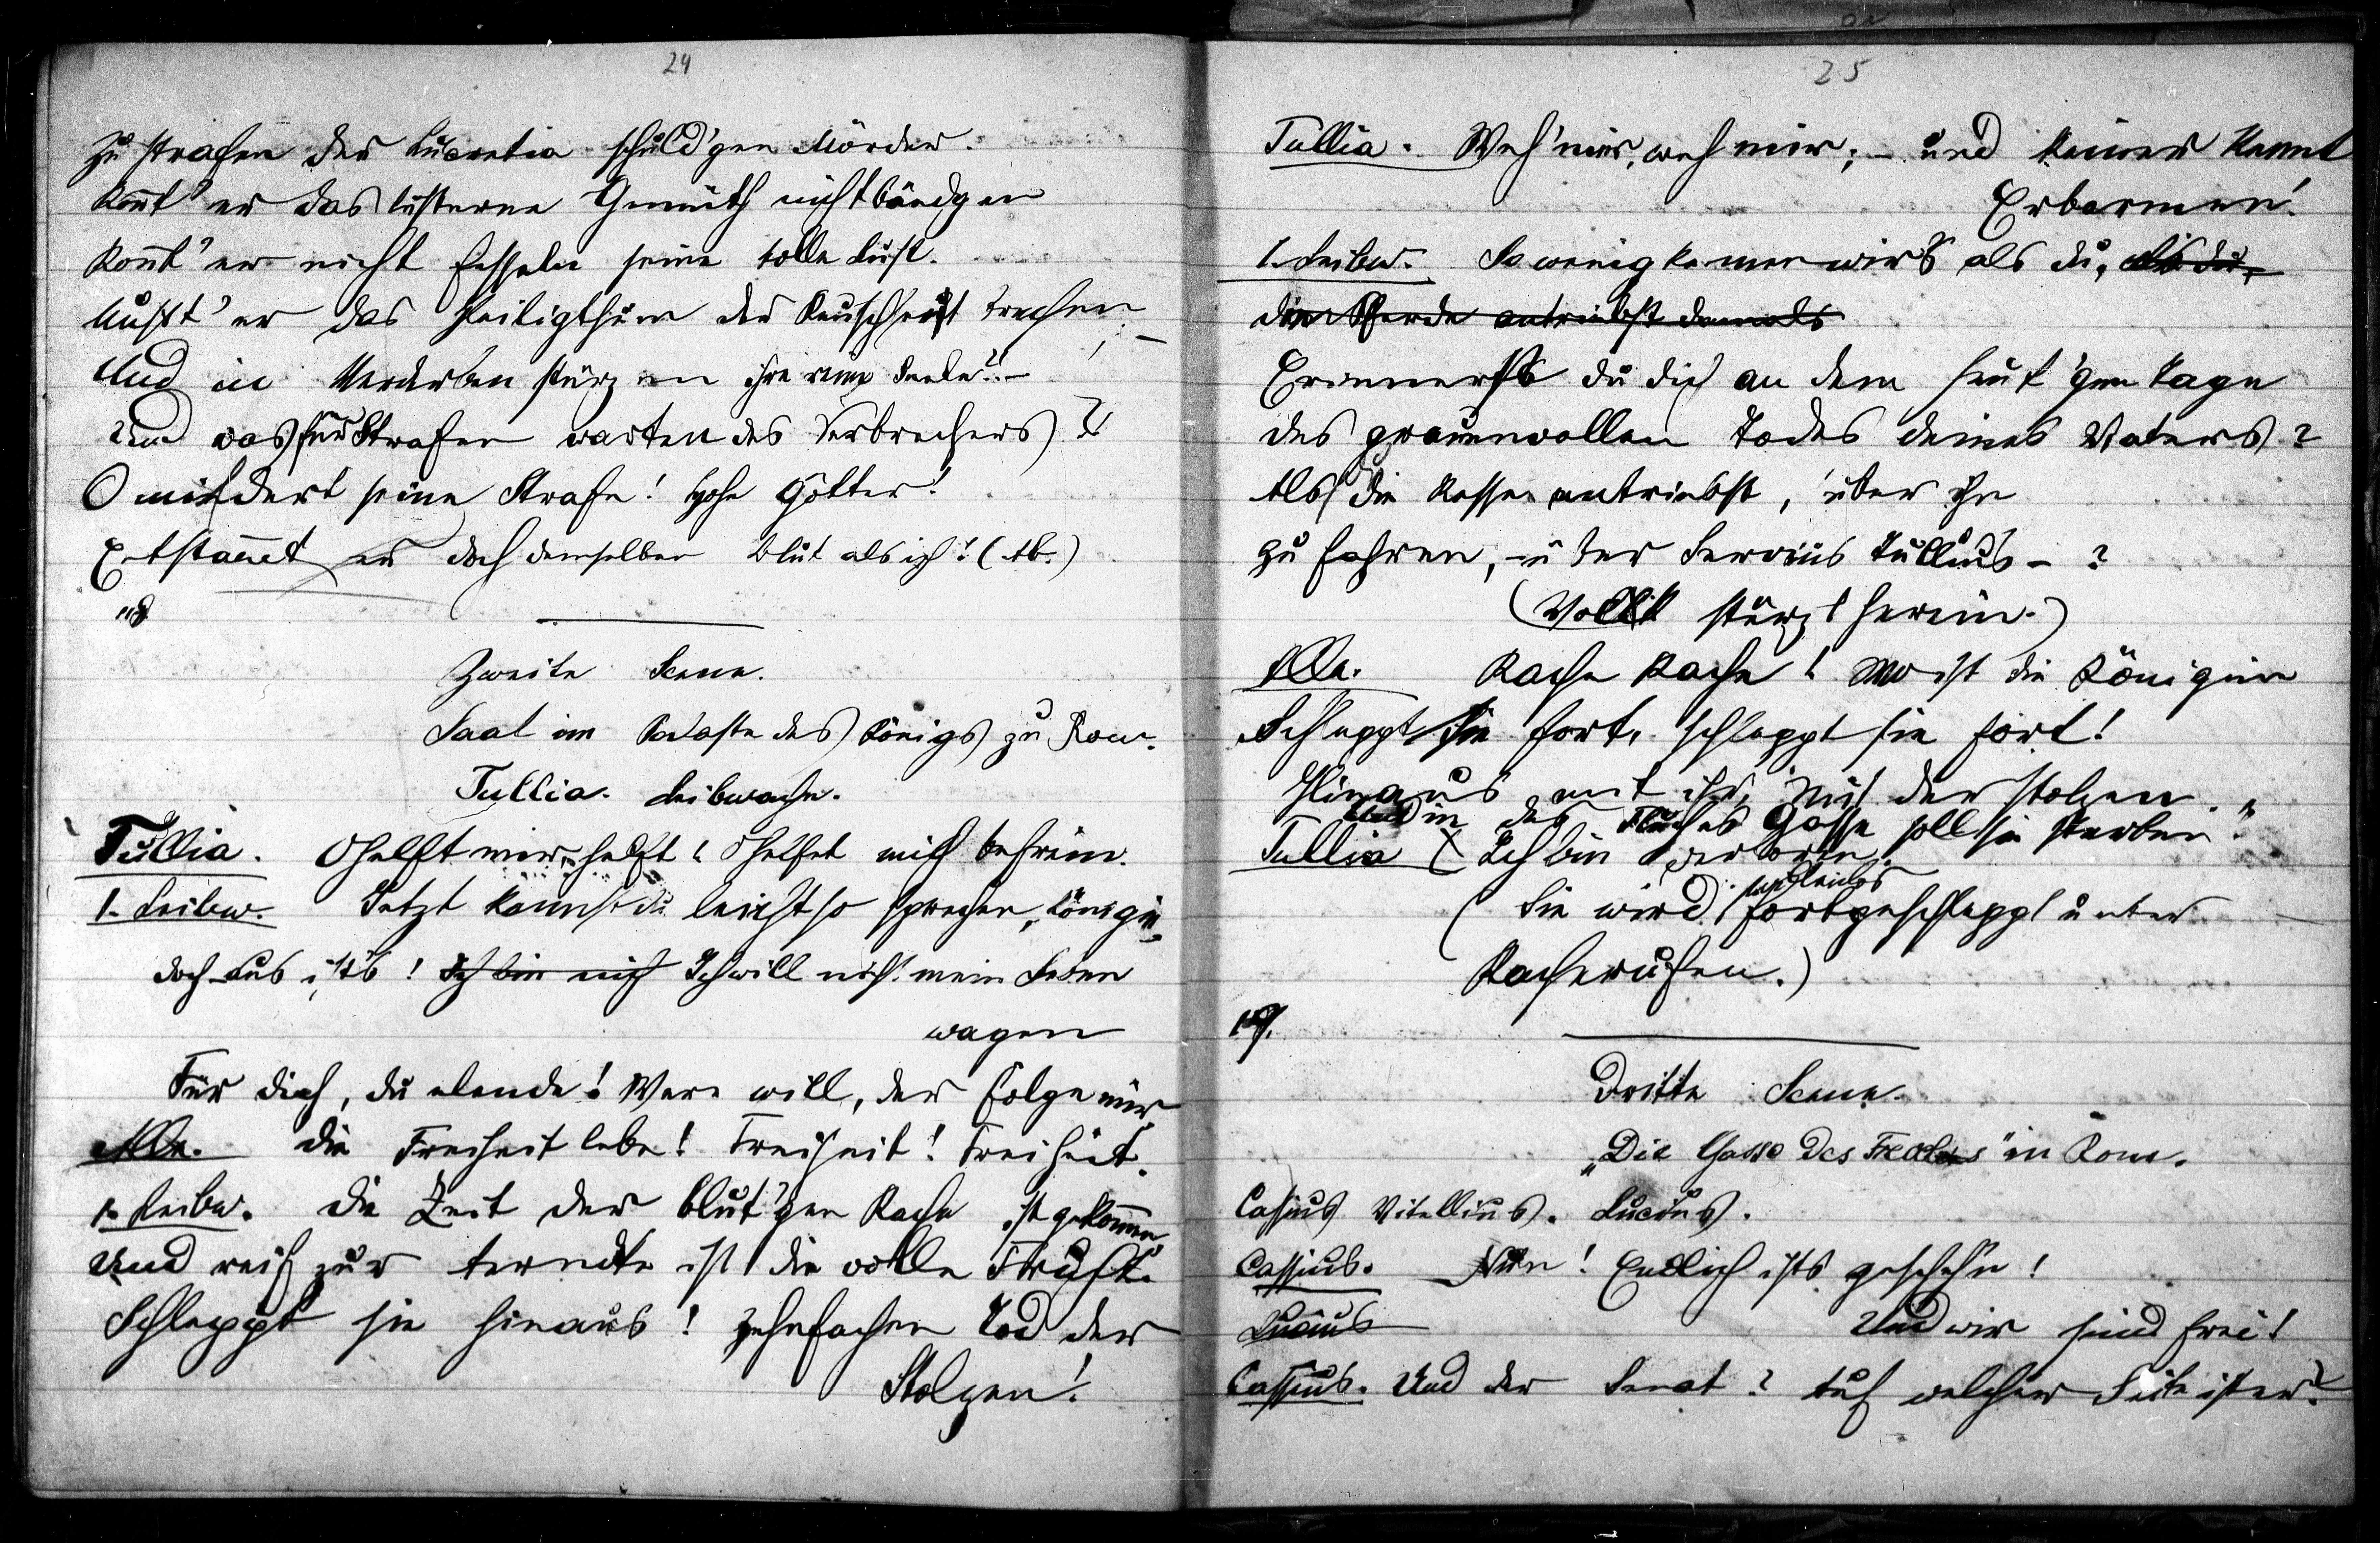 24
zu strafen der Lucretia schuld'gen Mörder.
Konnt' er das lüsterne Gemüth nicht bändgen
Konnt' er nicht fesseln seine tolle Lust.
Mußt' er das Heiligthum der Keuschheit brechen
Und in Verderben stürzen ihre reine Seele? –
Und was für Strafen warten des Verbrechers?
O mindert seine Strafe! Hohe Götter!
Entstammet er doch demselben Blut als ich! (Ab.)
18
Zweite Scene.
Saal im Palaste des Königs zu Rom.
Tullia. Leibwache.
Tullia. O helft mir, helft! O helfet mich befrein.
1. Leibw. Jetzt kannst du leicht so sprechen, Königin
doch aus ists! Ich bin nich Ich will nicht mein Leben
wagen
Für dich, du elende! Wer will, der folge mir
Alle. Die Freiheit lebe! Freiheit! Freiheit.
1. Leibw. Die Zeit der blut'gen Rache ist gekommen
Und reif zur Erndte ist die volle Frucht.
Schleppt sie hinaus! zehnfachen Tod der
Stolzen!
25
Tullia. Weh' mir, weh mir; – und keiner kennt
Erbarmen!
1. Leibw. So wenig kennen wirs als du, als du,
die Pferde antriebst damals
Erinnerst du dich an dem heut'gen Tage
des grauenvollen Todes deines Vaters?
Als du die Rosse antriebst, über ihn
zu fahren, – über Servius Tullius – ?
(Volk stürzt herein.)
Alle. Rache Rache! Wo ist die Königin
Schleppt sie fort, schleppt sie fort!
Hinaus mit ihr, mit der stolzen.
Und in des Fluches Gasse soll sie sterben"
Tullia (Ich bin verloren.
(Sie wird fortgeschleppt unter
Racherufen.)
19.
Dritte Scene.
„Die Gasse des Frevlers" in Rom.
Cassius Vitellius. Lucius.
Cassius. Nun! Endlich ists geschehn!
Lucius Und wir sind frei!
Cassius. Und der Senat? Auf welcher Seite ist er?